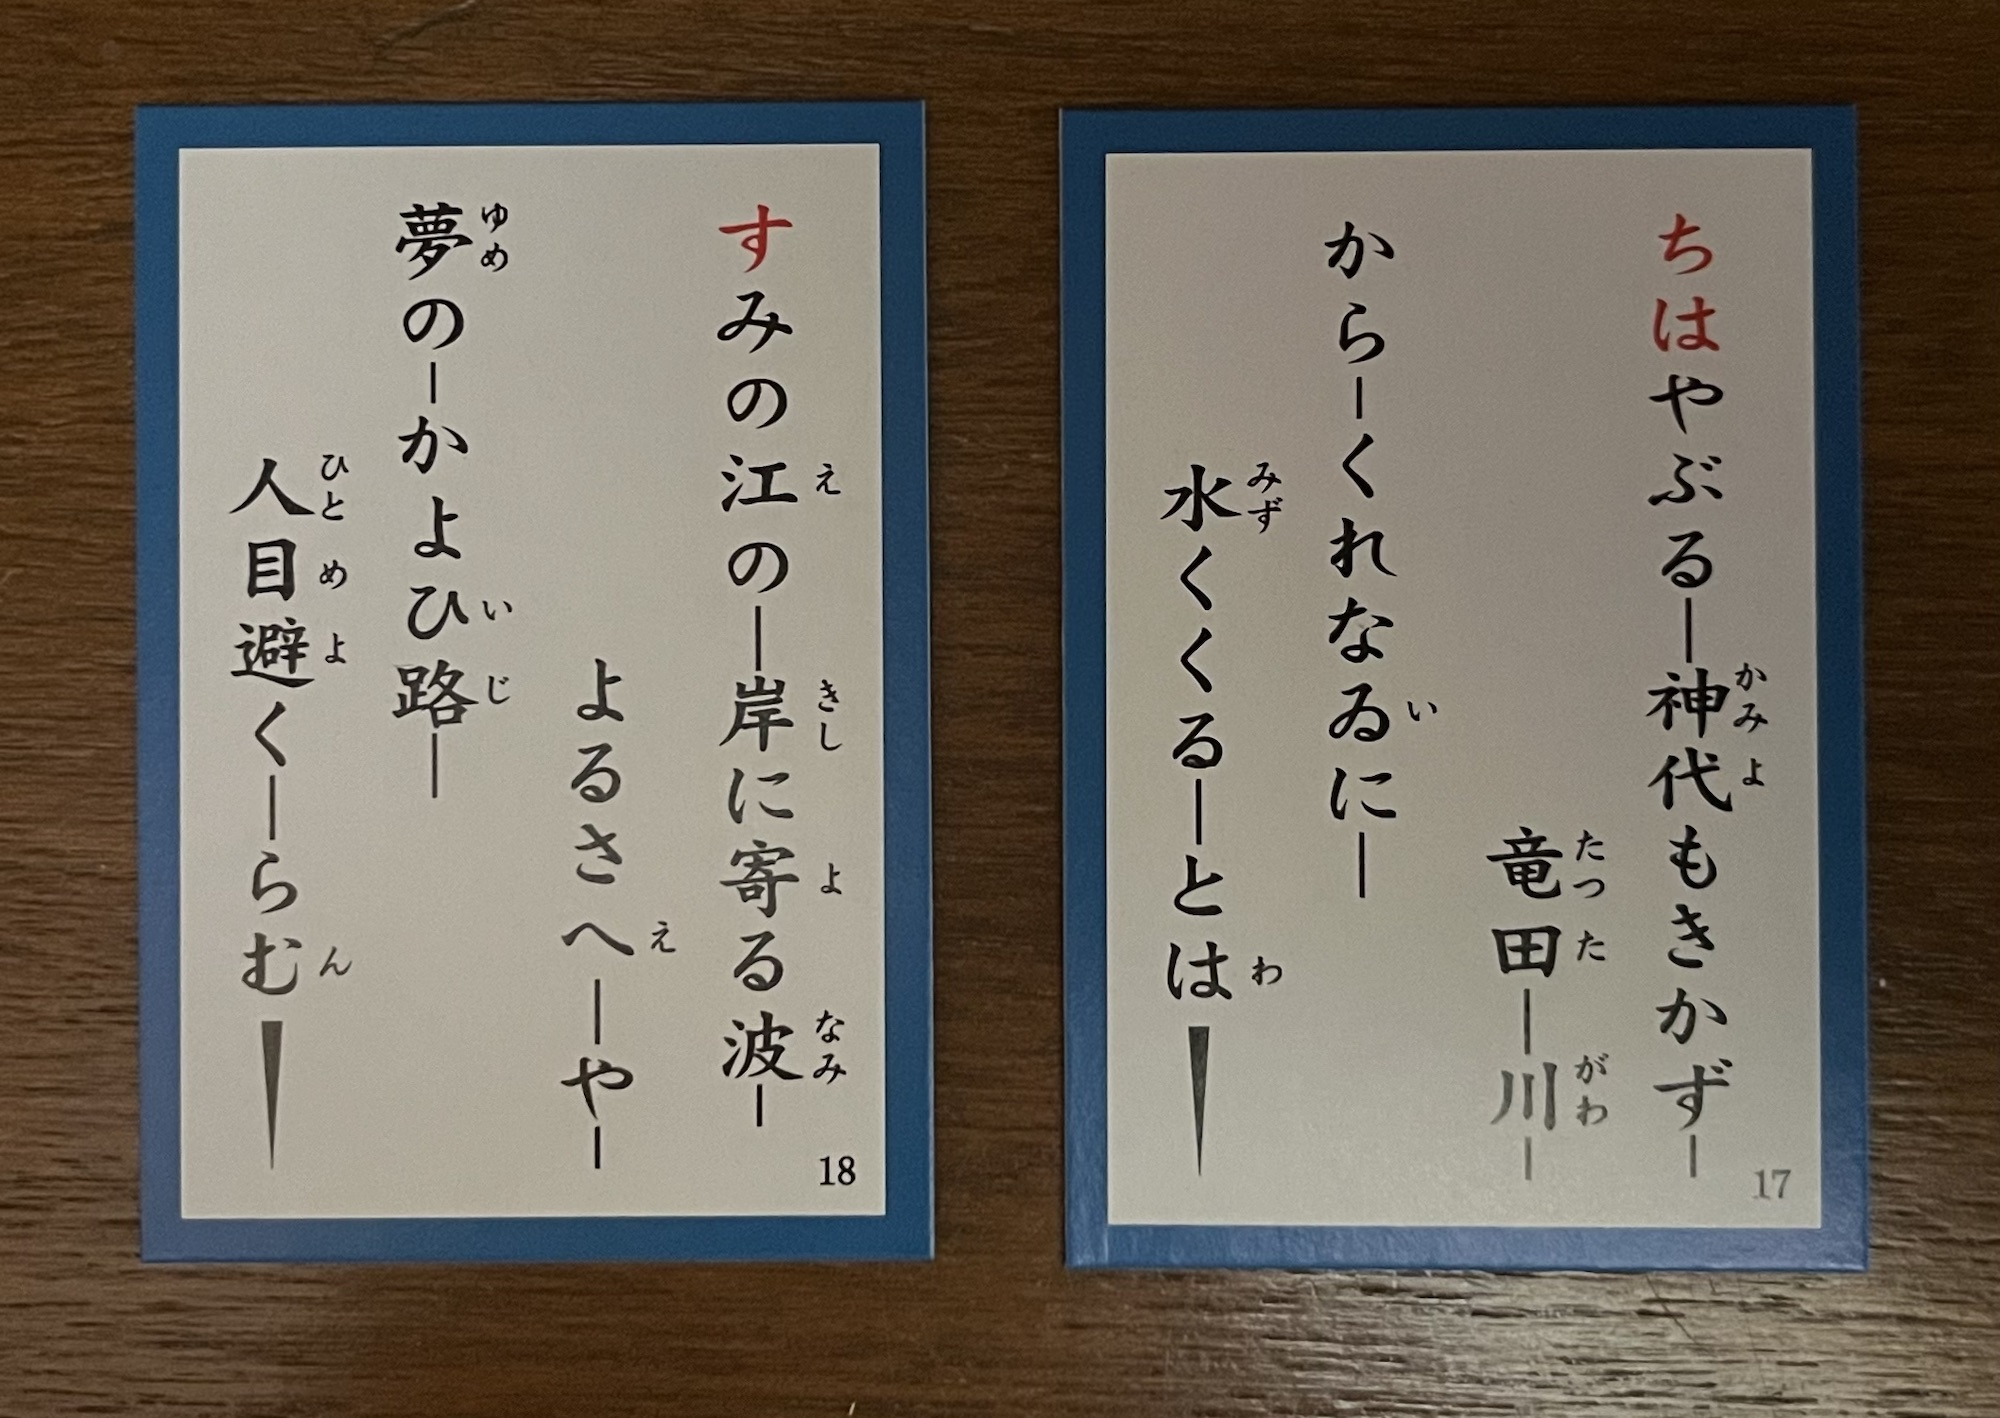 ちはやぶるー神代もきかずー
かみよ
竜田ー川ー
たつたがわ
からーくれなゐにー
い
水くくるーとは
みずわ
17
すみの江のー岸に寄る波ー
えきしよなみ
よるさへーやー
え
夢のーかよひ路ー
ゆめいじ
人目避くーらむ
ひとめよん
18